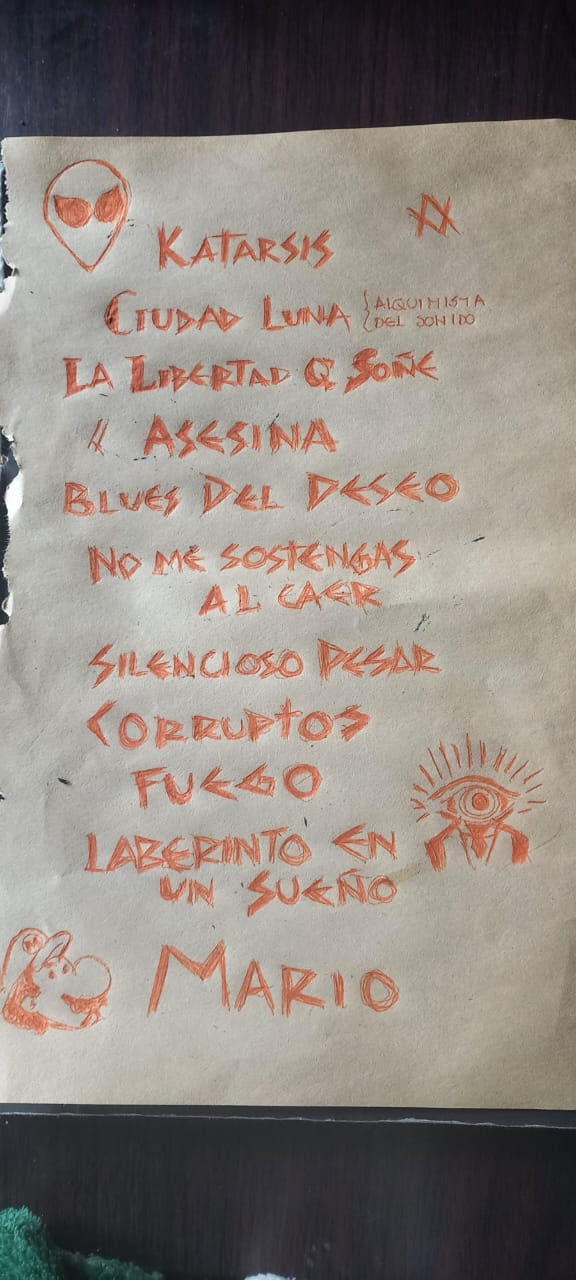 KATARSIS
CIUDAD LUNA {ALQUIMISTA
DEL SONIDO
LA LIBERTAD Q SOÑE
ASESINA
BLUES DEL DESEO
NO ME SOSTENGAS
AL CAER
SILENCIOSO PESAR
CORRUPTOS
FUEGO
LABERINTO EN
UN SUEÑO
M
MARIO